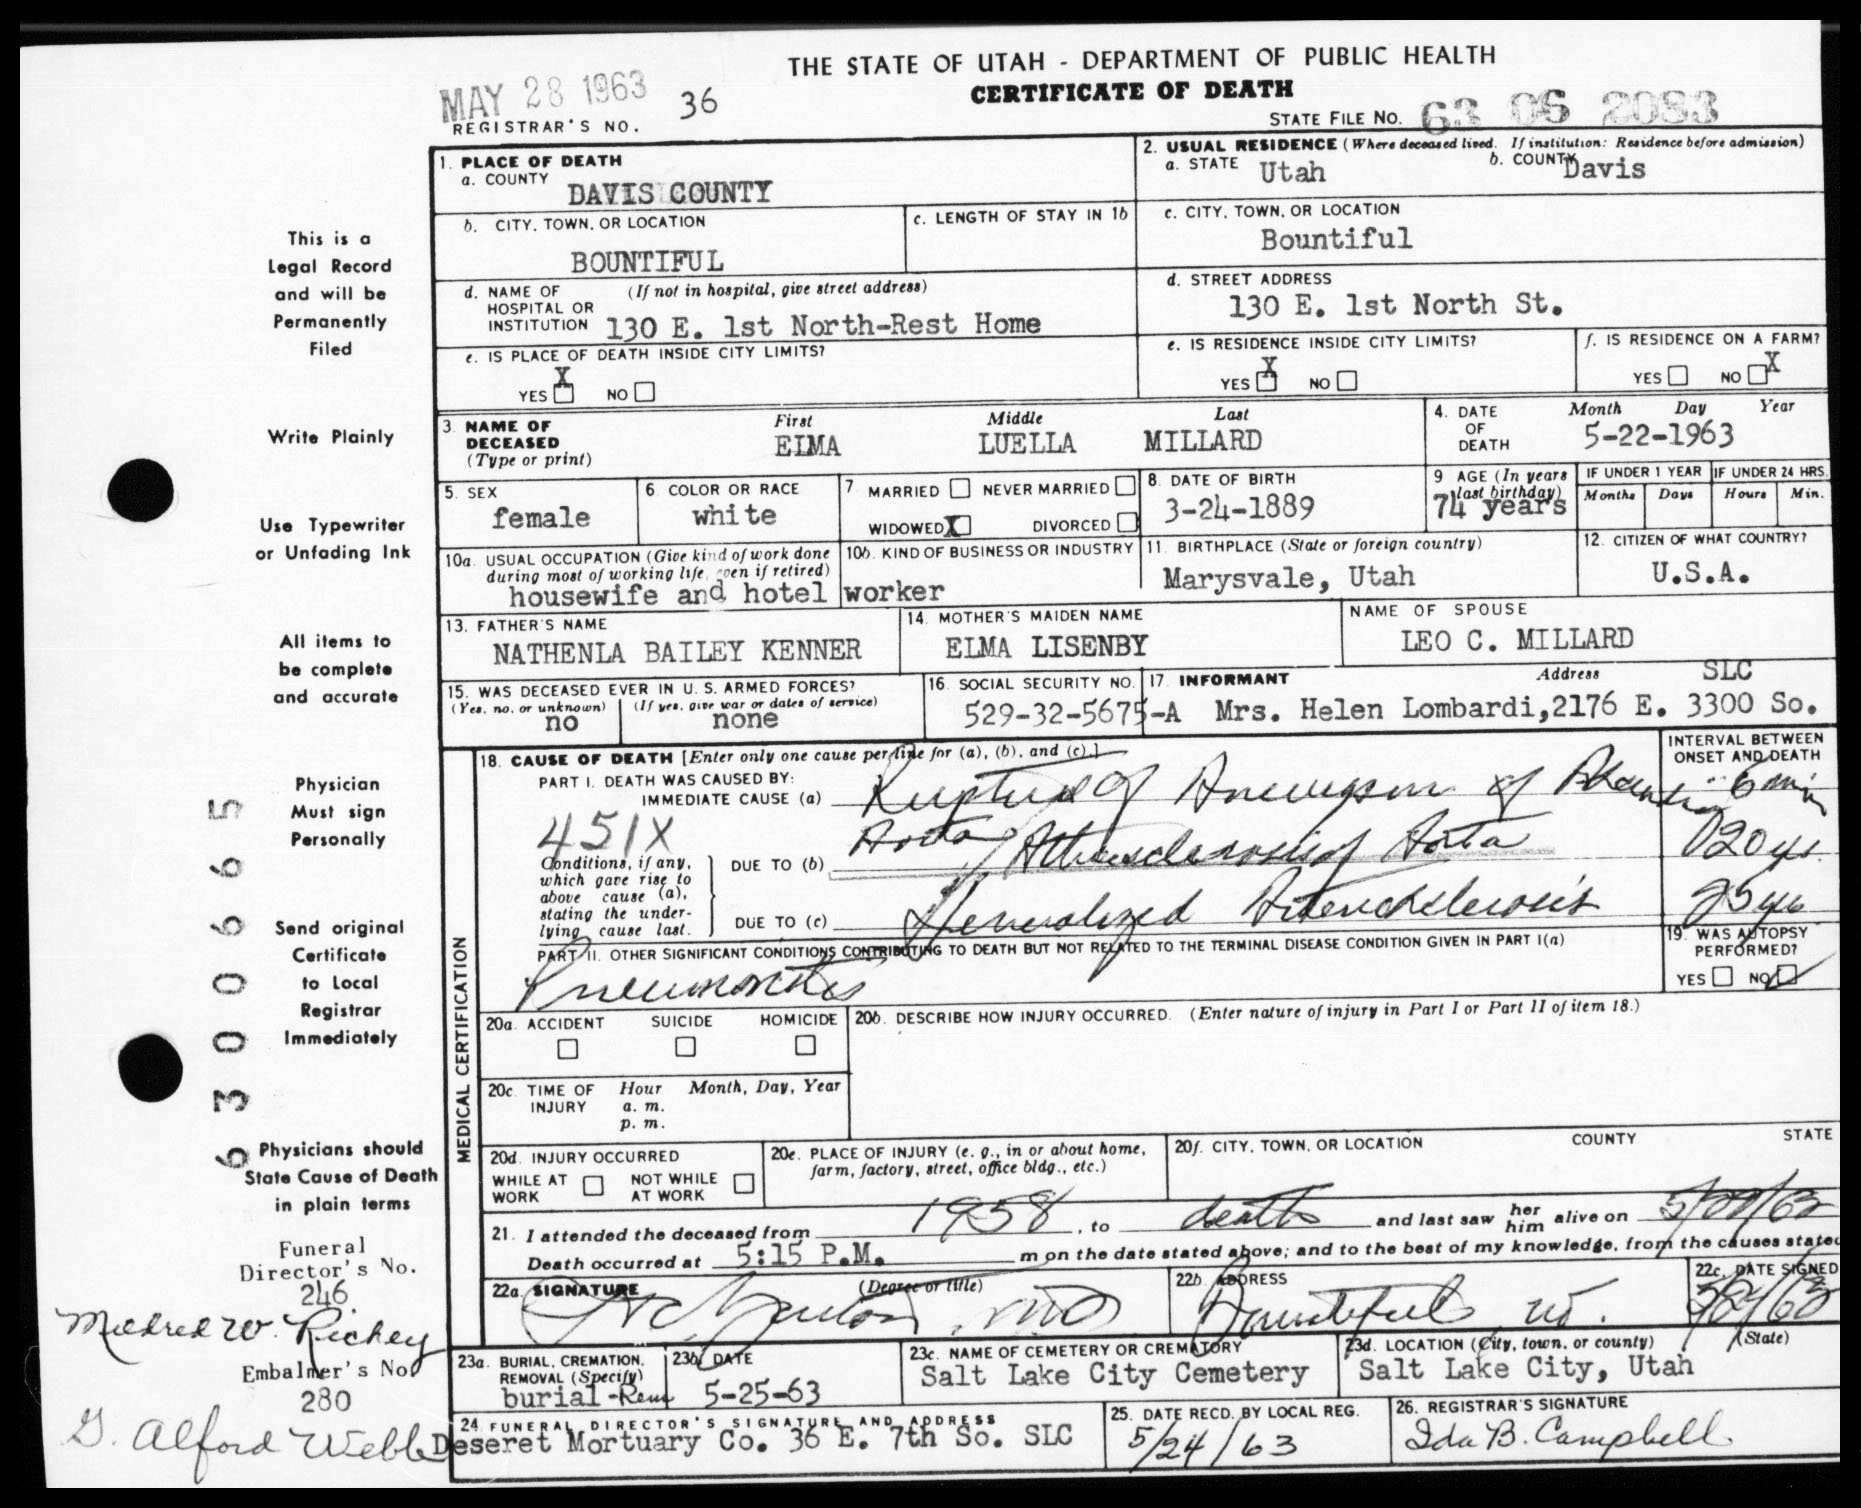 THE STATE OF UTAH - DEPARTMENT OF PUBLIC HEALTH
CERTIFICATE OF DEATH
MAY 28 1963 36
REGISTRAR'S NO.
STATE FILE NO. 63 06 2083
1. PLACE OF DEATH
a. COUNTY DAVIS COUNTY
2. USUAL RESIDENCE (Where deceased lived. If institution: Residence before admission)
a. STATE Utah b. COUNTY Davis
b. CITY, TOWN, OR LOCATION BOUNTIFUL
c. LENGTH OF STAY IN 1b
c. CITY, TOWN, OR LOCATION
Bountiful
d. NAME OF HOSPITAL OR INSTITUTION (If not in hospital, give street address)
130 E. 1st North-Rest Home
d. STREET ADDRESS
130 E. 1st North St.
e. IS PLACE OF DEATH INSIDE CITY LIMITS?
YES X NO
e. IS RESIDENCE INSIDE CITY LIMITS?
YES X NO
f. IS RESIDENCE ON A FARM?
YES NO X
3. NAME OF DECEASED (Type or print)
First Middle Last
ELMA LUELLA MILLARD
4. DATE OF DEATH
Month Day Year
5-22-1963
5. SEX
female
6. COLOR OR RACE
white
7. MARRIED NEVER MARRIED
WIDOWED X DIVORCED
8. DATE OF BIRTH
3-24-1889
9 AGE (In years last birthday)
74 years
IF UNDER 1 YEAR IF UNDER 24 HRS.
Months Days Hours Min.
10a. USUAL OCCUPATION (Give kind of work done during most of working life, even if retired)
10b. KIND OF BUSINESS OR INDUSTRY
housewife and hotel worker
11. BIRTHPLACE (State or foreign country)
Marysvale, Utah
12. CITIZEN OF WHAT COUNTRY?
U.S.A.
13. FATHER'S NAME
NATHENLA BAILEY KENNER
14. MOTHER'S MAIDEN NAME
ELMA LISENBY
NAME OF SPOUSE
LEO C. MILLARD
15. WAS DECEASED EVER IN U. S. ARMED FORCES?
(Yes, no, or unknown) (If yes, give war or dates of service)
no none
16. SOCIAL SECURITY NO.
529-32-5675-A
17. INFORMANT Address SLC
Mrs. Helen Lombardi, 2176 E. 3300 So.
MEDICAL CERTIFICATION
18. CAUSE OF DEATH [Enter only one cause per line for (a), (b), and (c).]
INTERVAL BETWEEN ONSET AND DEATH
PART I. DEATH WAS CAUSED BY:
IMMEDIATE CAUSE (a) Rupture of Aneurysm of Abdominal 6 min
451X Aorta
Conditions, if any, which gave rise to above cause (a), stating the underlying cause last.
DUE TO (b) Atherosclerosis of Aorta 20 yr.
DUE TO (c) Generalized Arteriosclerosis 25 yrs
PART II. OTHER SIGNIFICANT CONDITIONS CONTRIBUTING TO DEATH BUT NOT RELATED TO THE TERMINAL DISEASE CONDITION GIVEN IN PART I(a)
Pneumonitis
19. WAS AUTOPSY PERFORMED?
YES NO
20a. ACCIDENT SUICIDE HOMICIDE
20b. DESCRIBE HOW INJURY OCCURRED. (Enter nature of injury in Part I or Part II of item 18.)
20c. TIME OF INJURY Hour Month, Day, Year
a. m.
p. m.
20d. INJURY OCCURRED
WHILE AT WORK NOT WHILE AT WORK
20e. PLACE OF INJURY (e. g., in or about home, farm, factory, street, office bldg., etc.)
20f. CITY, TOWN, OR LOCATION COUNTY STATE
21. I attended the deceased from 1958, to death and last saw her him alive on 5/22/63
Death occurred at 5:15 P.M. m on the date stated above; and to the best of my knowledge, from the causes stated
22a. SIGNATURE (Degree or title)
MD
22b. ADDRESS
Bountiful, Ut.
22c. DATE SIGNED
5/24/63
23a. BURIAL, CREMATION, REMOVAL (Specify)
burial-Rem
23b. DATE
5-25-63
23c. NAME OF CEMETERY OR CREMATORY
Salt Lake City Cemetery
23d. LOCATION (City, town, or county) (State)
Salt Lake City, Utah
24. FUNERAL DIRECTOR'S SIGNATURE AND ADDRESS
Deseret Mortuary Co. 36 E. 7th So. SLC
25. DATE RECD. BY LOCAL REG.
5/24/63
26. REGISTRAR'S SIGNATURE
Ida B. Campbell
This is a
Legal Record
and will be
Permanently
Filed
Write Plainly
Use Typewriter
or Unfading Ink
All items to
be complete
and accurate
Physician
Must sign
Personally
Send original
Certificate
to Local
Registrar
Immediately
Physicians should
State Cause of Death
in plain terms
6300665
Funeral
Director's No.
246
Mildred W. Richey
Embalmer's No
280
G. Alford Webb